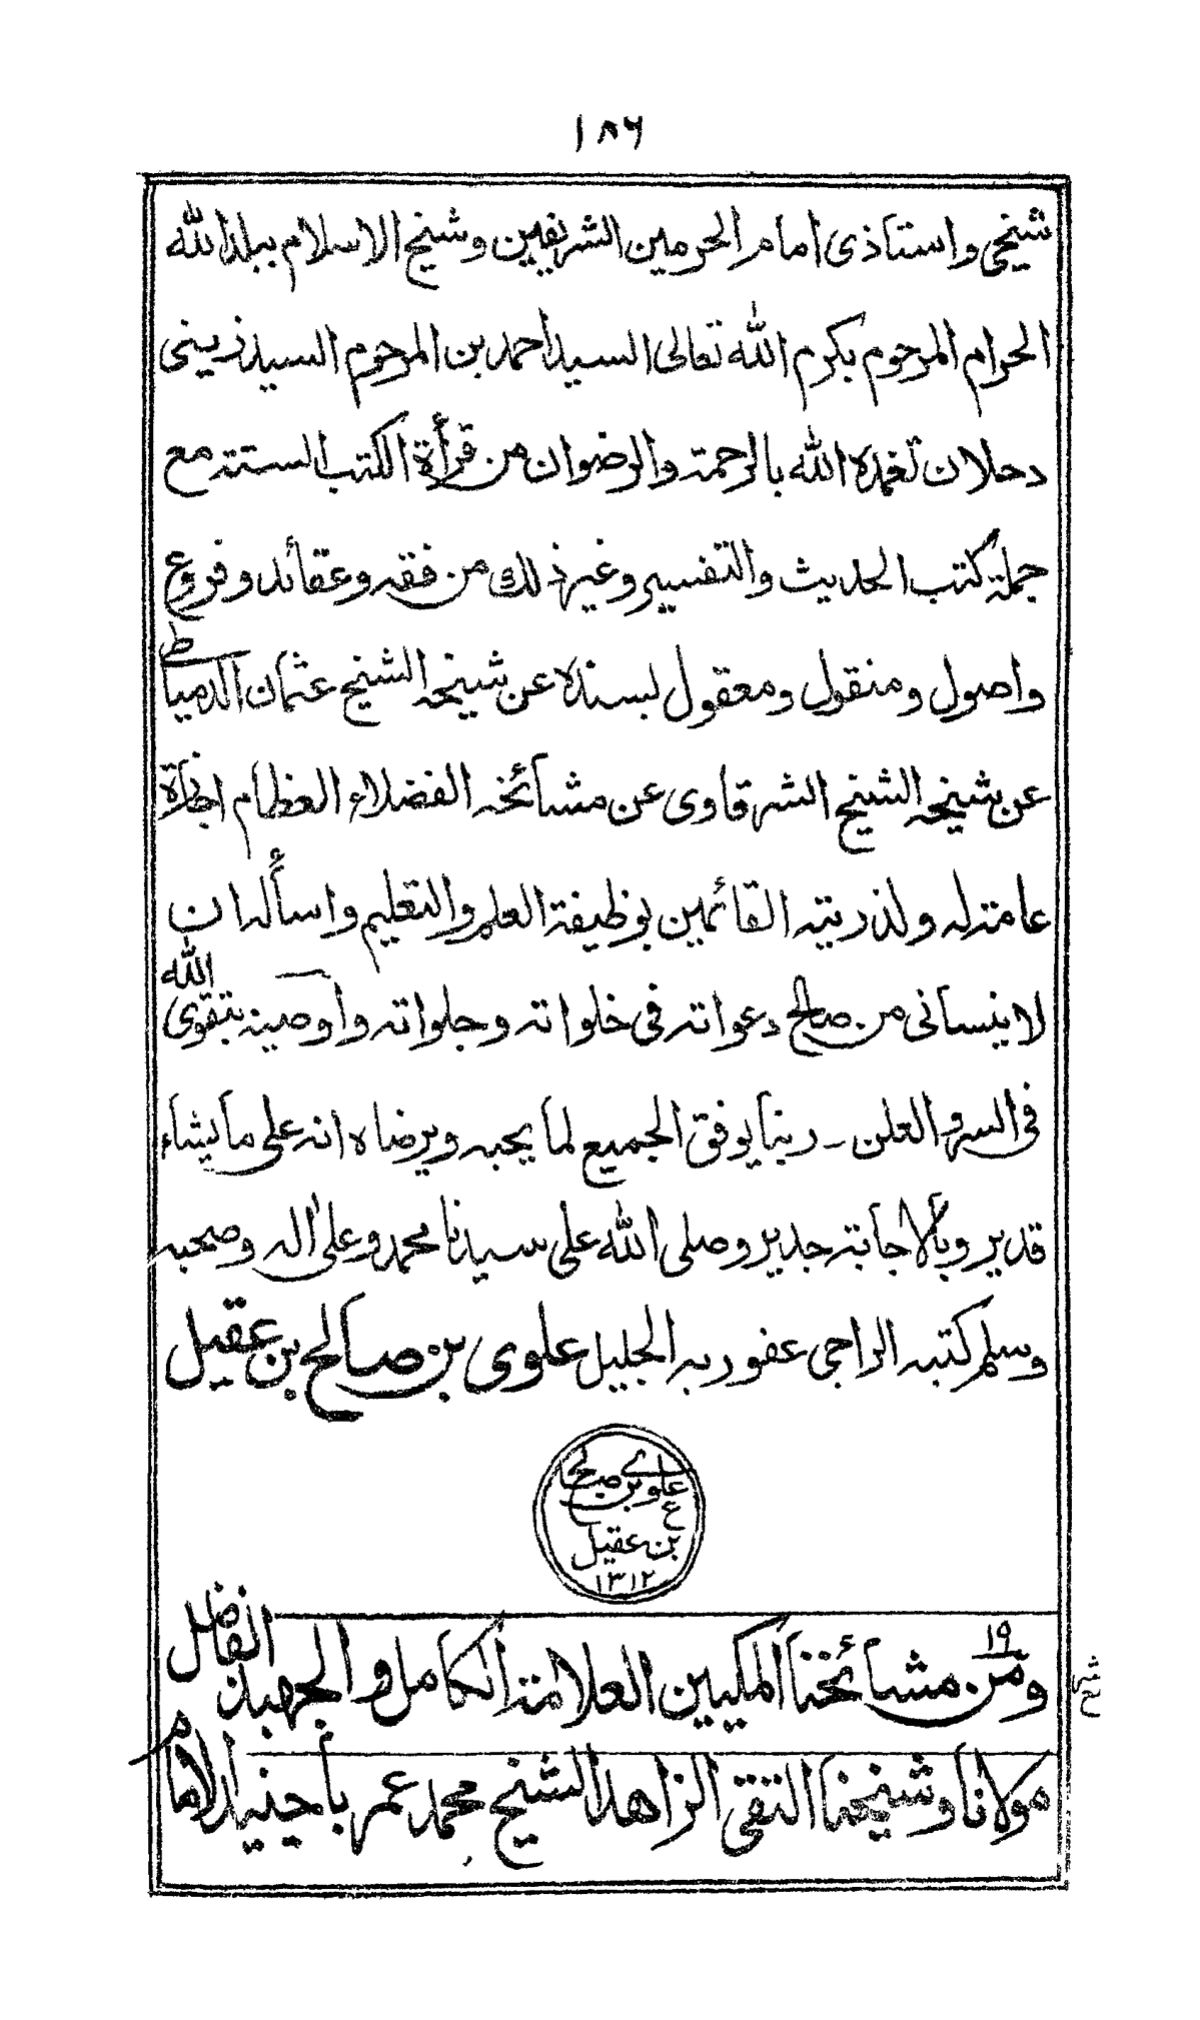 ١٨٦
شيخى واستاذى امام الحرمين الشريفين وشيخ الاسلام ببلد الله
الحرام المرحوم بكرم الله تعالى السيد أحمد بن المرحوم السيد زينى
دحلان تغمده الله بالرحمة والرضوان من قرأة الكتب الستة مع
جملة كتب الحديث والتفسير وغير ذلك من فقه وعقائد وفروع
واصول ومنقول ومعقول بسنده عن شيخه الشيخ عثمان الدمياطى
عن شيخه الشيخ الشرقاوى عن مشائخه الفضلاء العظام اجازة
عامة له ولذريته القائمين بوظيفة العلم والتعليم واسأله ان
لا ينسانى من صالح دعواته فى خلواته وجلواته وأوصيه بتقوى الله
فى السر والعلن - ربنا يوفق الجميع لما يحبه ويرضاه انه على ما يشاء
قدير وبالاجابة جدير وصلى الله على سيدنا محمد وعلى اله وصحبه
وسلم كتبه الراجى عفو ربه الجليل علوى بن صالح بن عقيل
علوي بن صالح
بن عقيل
١٣١٢
١٩
ومن مشائخنا المكيين العلامة الكامل والجهبذ الفاضل
مولانا وشيخنا التقى الزاهد الشيخ محمد عمر باجنيد الامام